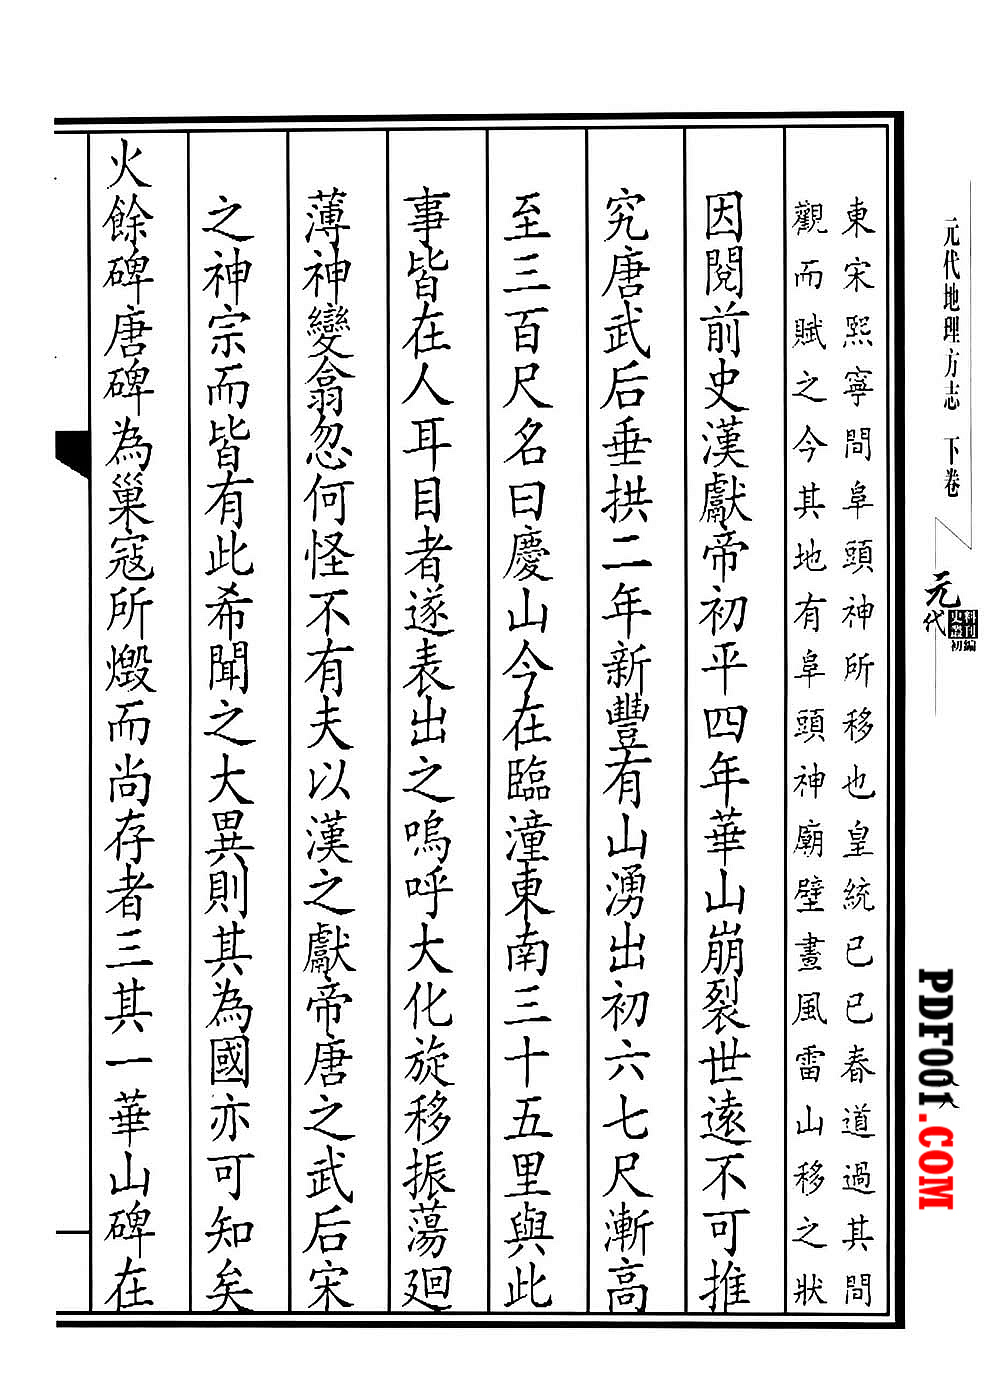 元代地理方志 下卷
元代
史料叢刊初編
東宋熙寧間阜頭神所移也皇統已巳春道過其間
觀而賦之今其地有阜頭神廟壁畫風雷山移之狀
因閱前史漢獻帝初平四年華山崩裂世遠不可推
究唐武后垂拱二年新豐有山湧出初六七尺漸高
至三百尺名曰慶山今在臨潼東南三十五里與此
事皆在人耳目者遂表出之嗚呼大化旋移振蕩廻
薄神變翕忽何怪不有夫以漢之獻帝唐之武后宋
之神宗而皆有此希聞之大異則其為國亦可知矣
火餘碑唐碑為巢寇所燬而尚存者三其一華山碑在
PDF001.COM